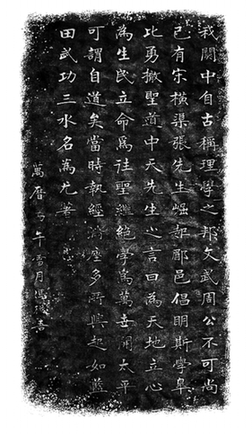 我關中自古稱理學之邦文武周公不可尚
已有宋橫渠張先生崛起郿邑倡明斯學皋
比勇撤聖道中天先生之言曰為天地立心
為生民立命為往聖繼絕學為萬世開太平
可謂自道矣當時執經滿座多所興起如藍
田武功三水名為尤著
萬曆年月馮